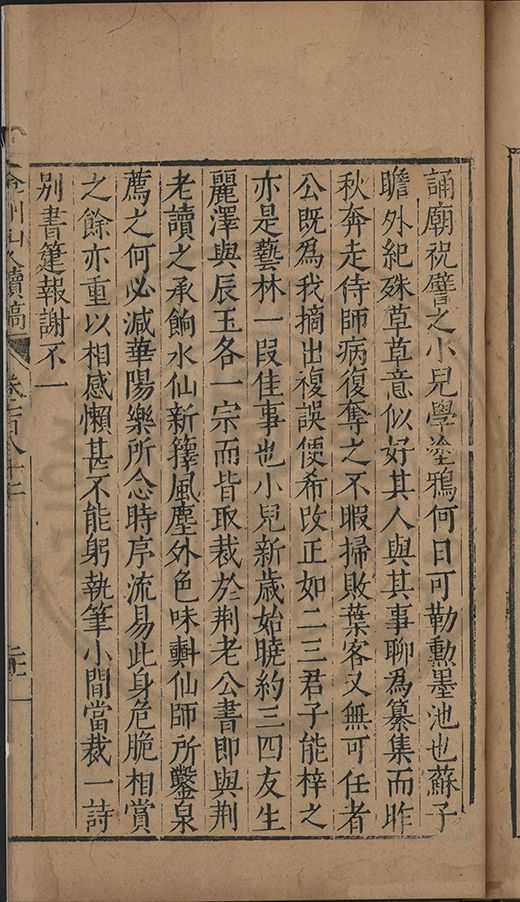 誦廟祝譬之小兒學塗鴉何日可勒勳墨池也蘇子
瞻外紀殊草草意似好其人與其事聊為纂集而昨
秋奔走侍師病復奪之不暇掃敗葉客又無可任者
公既為我摘出複誤便希改正如二三君子能梓之
亦是藝林一段佳事也小兒新歲始曉約三四友生
麗澤與辰玉各一宗而皆取裁於荆老公書即與荆
老讀之承餉水仙新籜風塵外色味㪺仙師所鑿泉
薦之何必減華陽樂所念時序流易此身危脆相賞
之餘亦重以相感懶甚不能躬執筆小間當裁一詩
別書箑報謝不一
弇州山人續稿
卷之一百八十二